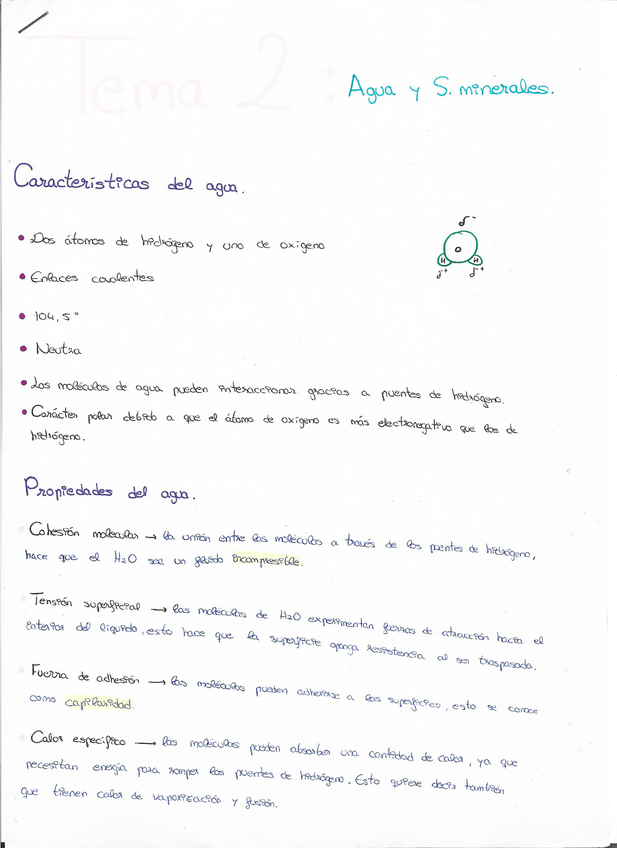 Tema 2:
Agua y S. minerales.
Características del agua.
• Dos átomos de hidrógeno y uno de oxígeno
• Enlaces covalentes
• 104,5°
• Neutra
• Las moléculas de agua pueden interaccionar gracias a puentes de hidrógeno.
• Carácter polar debido a que el átomo de oxígeno es más electronegativo que los de
hidrógeno.
δ⁻
O
H H
δ⁺ δ⁺
Propiedades del agua.
Cohesión molecular → la unión entre las moléculas a través de los puentes de hidrógeno,
hace que el H2O sea un fluido incompresible.
Tensión superficial → las moléculas de H2O experimentan fuerzas de atracción hacia el
interior del líquido, esto hace que la superficie oponga resistencia al ser traspasada.
Fuerza de adhesión → las moléculas pueden adherirse a las superficies, esto se conoce
como capilaridad.
Calor específico → las moléculas pueden absorber una cantidad de calor, ya que
necesitan energía para romper los puentes de hidrógeno. Esto quiere decir también
que tienen calor de vaporización y fusión.